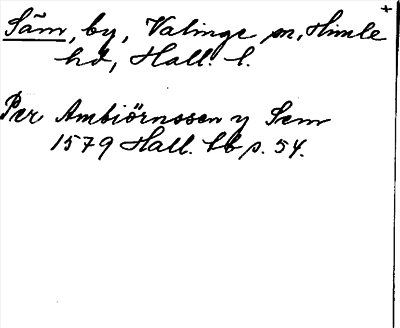 Säm, by, Valinge sn, Himle +
hd, Hall. l.
Per Ambiörnssen y Sem
1579 Hall. lb s. 54.